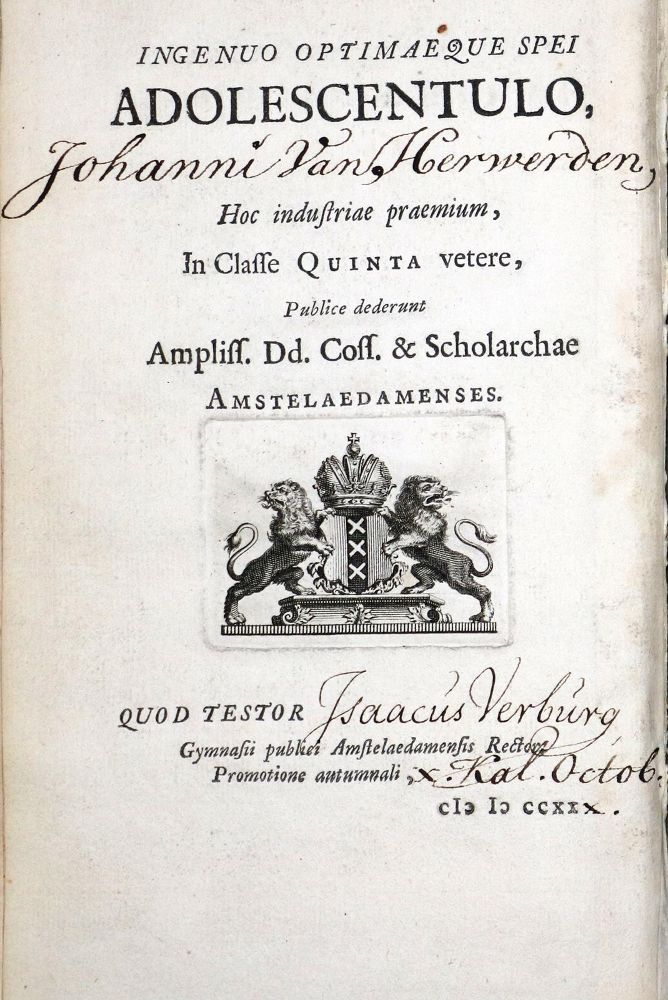 INGENUO OPTIMAEQUE SPEI
ADOLESCENTULO,
Johanni Van Herwerden,
Hoc induſtriae praemium,
In Claſſe QUINTA vetere,
Publice dederunt
Ampliſſ. Dd. Coſſ. & Scholarchae
AMSTELAEDAMENSES.
QUOD TESTOR Isaacus Verburg
Gymnaſii publici Amſtelaedamenſis Rector.
Promotione autumnali, x. Kal. Octob.
cIɔ Iɔ ccxxx.